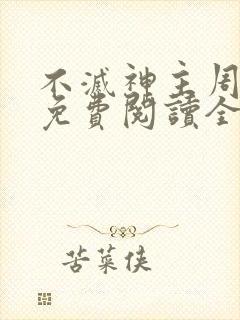 不滅神主周
免費閱讀全
苦菜俠